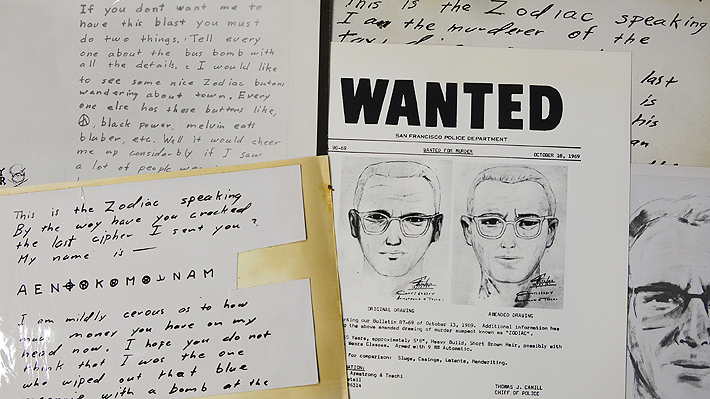 If you don't want me to
have this blast you must
do two things. 1 Tell every
one about the bus bomb with
all the details. 2 I would like
to see some nice Zodiac butons
wandering about town. Every
one else has these buttons like,
☮, black power, melvin eats
bluber, etc. Well it would cheer
me up considerbly if I saw
a lot of people
This is the Zodiac speaking
I am the murderer of the
last
is
his
an
This is the Zodiac speaking
By the way have you cracked
the last cipher I sent you?
My name is —
I am mildly cerous as to how
much money you have on my
head now. I hope you do not
think that I was the one
who wiped out that blue
with a bomb at the
WANTED
SAN FRANCISCO POLICE DEPARTMENT
90-69 WANTED FOR MURDER OCTOBER 18, 1969
ORIGINAL DRAWING AMENDED DRAWING
our Bulletin 87-69 of October 13, 1969. Additional information has
the above amended drawing of murder suspect known as "ZODIAC".
Years, approximately 5'8", Heavy Build, Short Brown Hair, possibly with
Wears Glasses. Armed with 9 MM Automatic.
for comparison: Slugs, Casings, Latents, Handwriting.
Armstrong & Toschi
THOMAS J. CAHILL
CHIEF OF POLICE